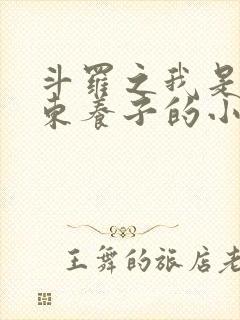 斗羅之我是
東養子的小
王舞的旅店老